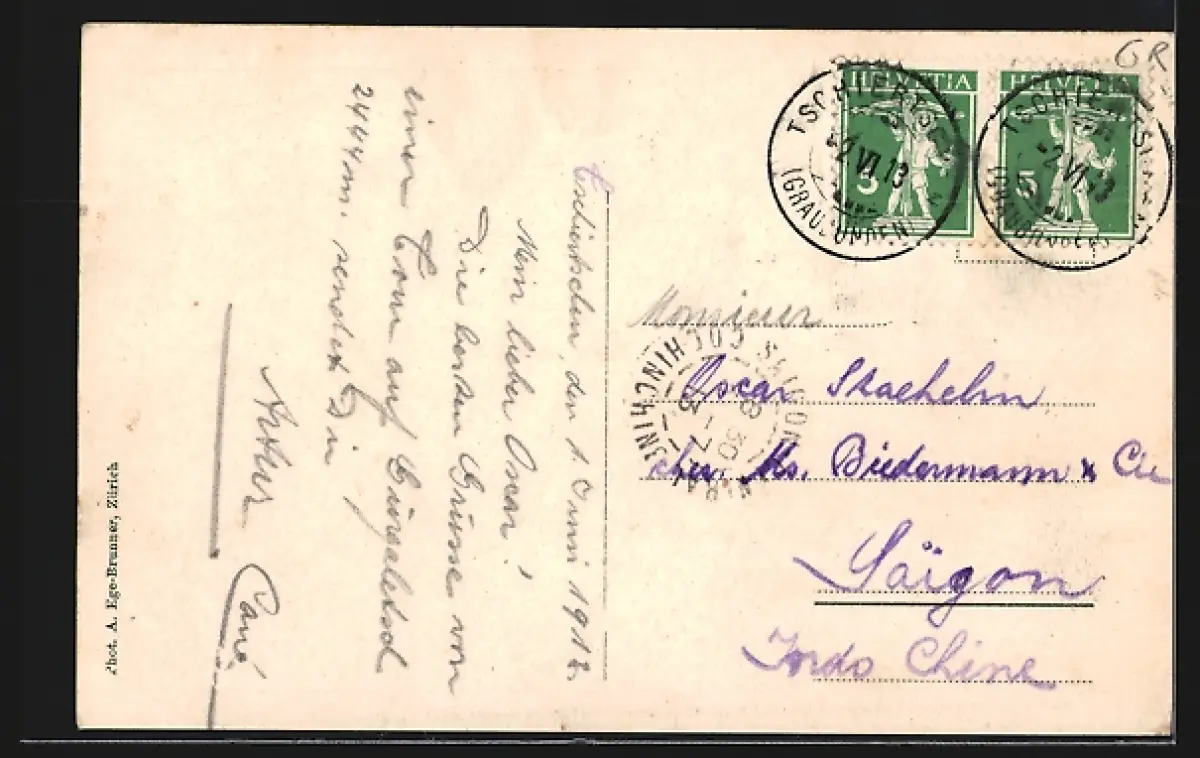 GR
HELVETIA HELVETIA
5 5
TSCHIERTSCHEN
-2.VI.13
(GRAUBÜNDEN)
TSCHIERTSCHEN
-2.VI.13
(GRAUBÜNDEN)
Monsieur
Oscar Staehelin
chez. Ms. Biedermann & Cie
Saïgon
Indo Chine
SAIGON
COCHINCHINE
Tschiertschen, den 1 Juni 1913.
Mein lieber Oscar!
Die besten Grüsse von
einer Tour auf
2444 m. sendet Dir
Arthur
Phot. A. Ege-Brunner, Zürich